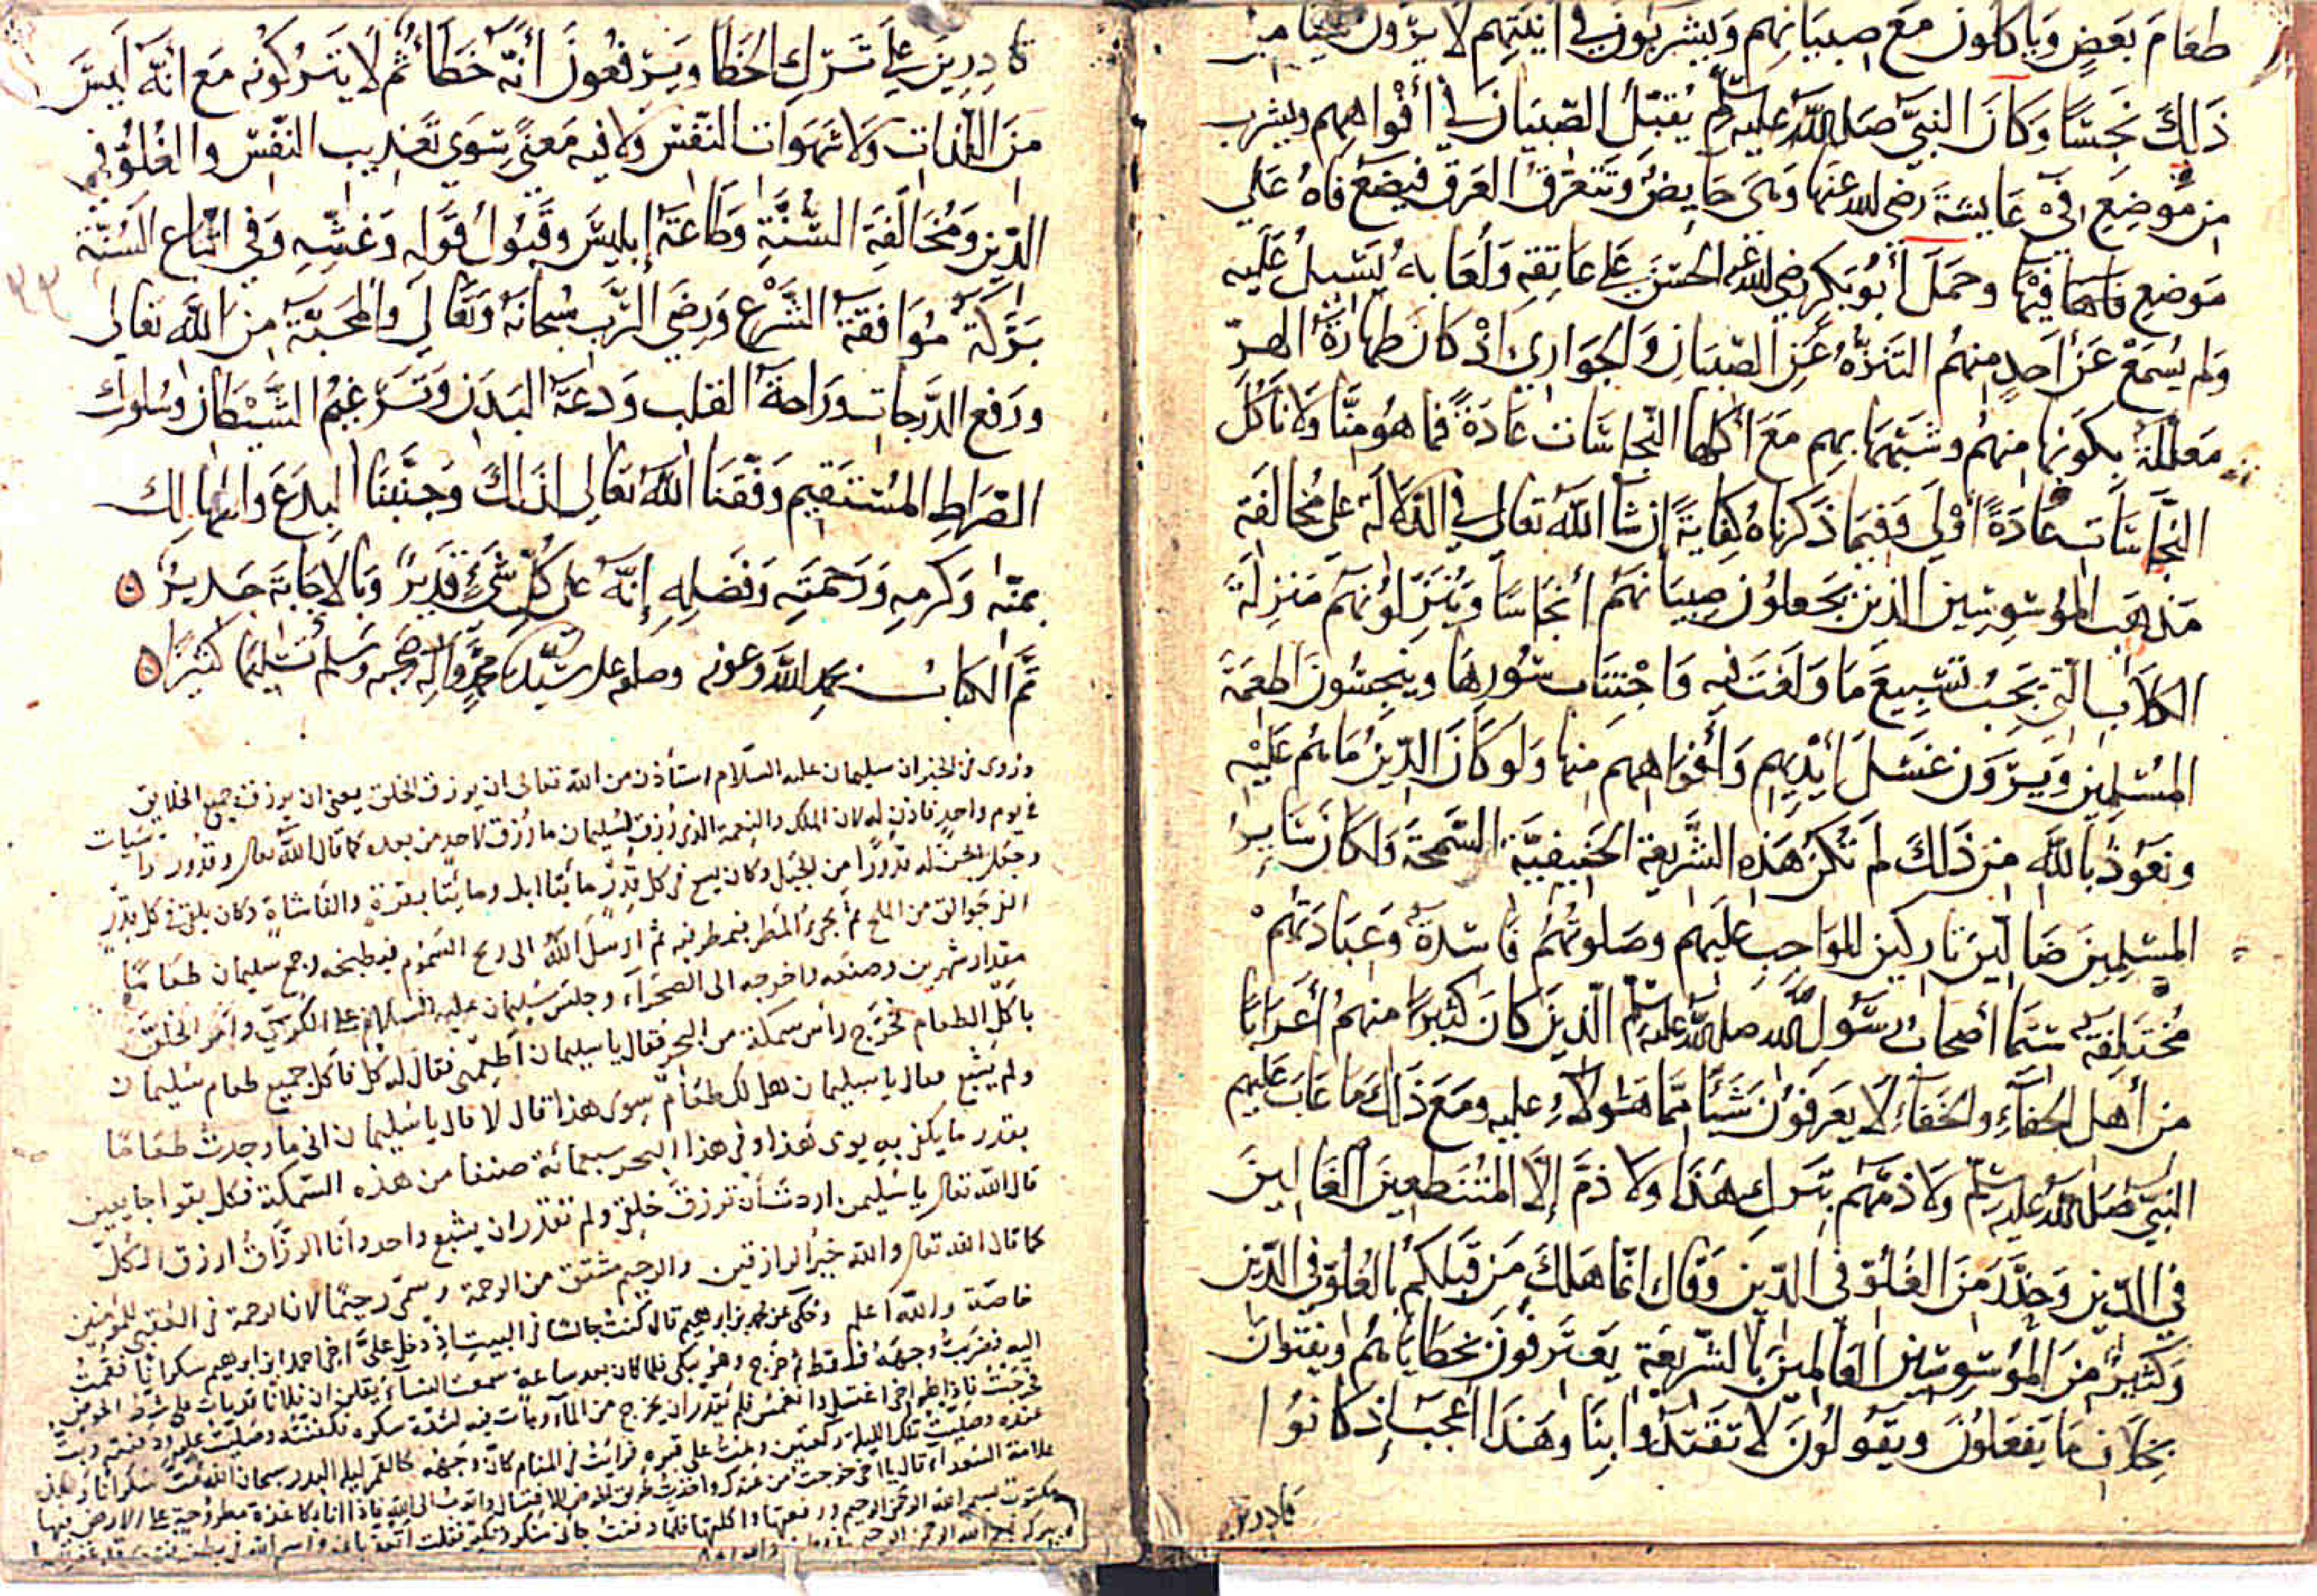 طعام بعض وياكلون مع صبيانهم ويشربون في انيتهم لا يرون شيا من
ذلك نجسا وكان النبي صلى الله عليه وسلم يقبل الصبيان في أفواههم ويشرب
من موضع في عايشة رضي الله عنها وهي حايض وتتعرق العرق فيضع فاه على
موضع فاها فيها وحمل أبو بكر رضي الله عنه الحسن على عاتقه ولعابه يسيل عليه
ولم يسمع عن أحد منهم التنزه عن الصبيان والجواري اذ كان طهارة الهر
معللة بكونها منهم وشبهها بهم مع أكلها النجاسات عادة فما هو منا ولا نأكل
النجاسات عادة أولى وفيما ذكرناه كفاية إن شا الله تعالى في الدلالة على مخالفة
مذهب الموسوسين الذين يجعلون صبيانهم أنجاسا وينزلونهم منزلة
الكلاب التي يجب تسبيع ما ولغت فيه واجتناب سورها وينجسون اطعمة
المسلمين ويرون غسل أيديهم وأفواههم منها ولو كان الدين ما هم عليه
ونعوذ بالله من ذلك لم تكن هذه الشريعة الحنيفية السمحة ولكان ساير
المسلمين ضالين تاركين للواجب عليهم وصلوتهم فاسدة وعبادتهم
مختلفة سيما أصحاب رسول الله صلى الله عليه وسلم الذين كان كثيرا منهم أعرابا
من أهل الجفاء والخفاء لا يعرفون شيأ مما هؤلاء عليه ومع ذلك ما عاب عليهم
النبي صلى الله عليه وسلم ولا ذمهم بترك هذا ولا ذم إلا المتنطعين الغالين
في الدين وحذر من الغلو في الدين وقال انما هلك من قبلكم بالغلو في الدين
وكثير من الموسوسين العالمين بالشريعة يعترفون بخطاياهم ويفتون
بخلاف ما يفعلون ويقولون لا تقتدوا بنا وهذا اعجب إذ كانوا
قادرين
قادرين على ترك الخطا ويرفعون أنه خطأ ثم لا يتركونه مع انه ليس
من اللذات ولا شهوات النفس ولا فيه معنى سوى تعذيب النفس والغلو في
الدين ومخالفة السنة وطاعة إبليس وقبول قوله وغشه وفي اتباع السنة
بركة موافقة الشرع ورضى الرب سبحانه وتعالى والمحبة من الله تعالى
ورفع الدرجات وراحة القلب ودعة البدن وترغيم الشيطان وسلوك
الصراط المستقيم وفقنا الله تعالى لذلك وجنبنا البدع والمهالك
بمنه وكرمه ورحمته وفضله إنه على كل شيء قدير وبالاجابة جدير
تم الكتاب بحمد الله وعونه وصلى الله على سيدنا محمد وآله وصحبه وسلم تسليما كثيرا
وروى في الخبر ان سليمان عليه السلام استأذن من الله تعالى ان يرزق الخلق يعنى ان يرزق جميع الخلايق
في يوم واحد فاذن له لان الملك والنعمة الذى رزق لسليمان ما رزق لاحد من بعده كما قال الله تعالى وقدور راسيات
وجعل الجن له قدورا من الجبل وكان يسع في كل قدر مائتا ابل ومائتا بقرة والفا شاة وكان يلقى في كل قدر
الف جوالق من الملح ثم أمطر فيه ثم ارسل الله الى ريح السموم فيطبخه وجمع سليمان طعاما
مقدار شهرين وصنعه واخرجه الى الصحراء وجلس سليمان عليه السلام على الكرسي وامر الخلق
باكل الطعام فخرج رأس سمكة من البحر فقال يا سليمان أطعمنى فقال له كل فاكل جميع طعام سليمان
ولم يشبع فقال يا سليمان هل لك طعام سوى هذا قال لا قال يا سليمان انى ما وجدت طعاما
بقدر ما يكفى به يومى هذا وفي هذا البحر سبعمائة صنفا من هذه السمكة فكل بقوا جايعين
قال الله تعالى يا سليمن اردت أن ترزق خلقى ولم تقدر ان يشبع واحد وانا الرزاق ارزق الكل
كما قال الله تعالى والله خير الرازقين والرحيم مشتق من الرحمة وسمى رحيما لان الرحمة في العقبى للمؤمنين
خاصة والله أعلم وحكى عن محمد بن ابراهيم قال كنت جالسا في البيت اذ دخل على اخى احمد ابن ابراهيم سكرانا فقمت
اليه فضربت وجهه فسقط ثم خرج وهو يبكى فلما كان بعد ساعة سمعت النساء يقلن ان فلانا قد مات على شط الحوض
فخرجت فاذا هو اخى اغتسل وانغمس فلم يقدر ان يخرج من الماء ومات فيه لشدة سكره فكفنته وصليت عليه ودفنته وبت
عنده وصليت تلك الليلة ركعتين ونمت على قبره فرايت في المنام كان وجهه كالقمر ليلة البدر